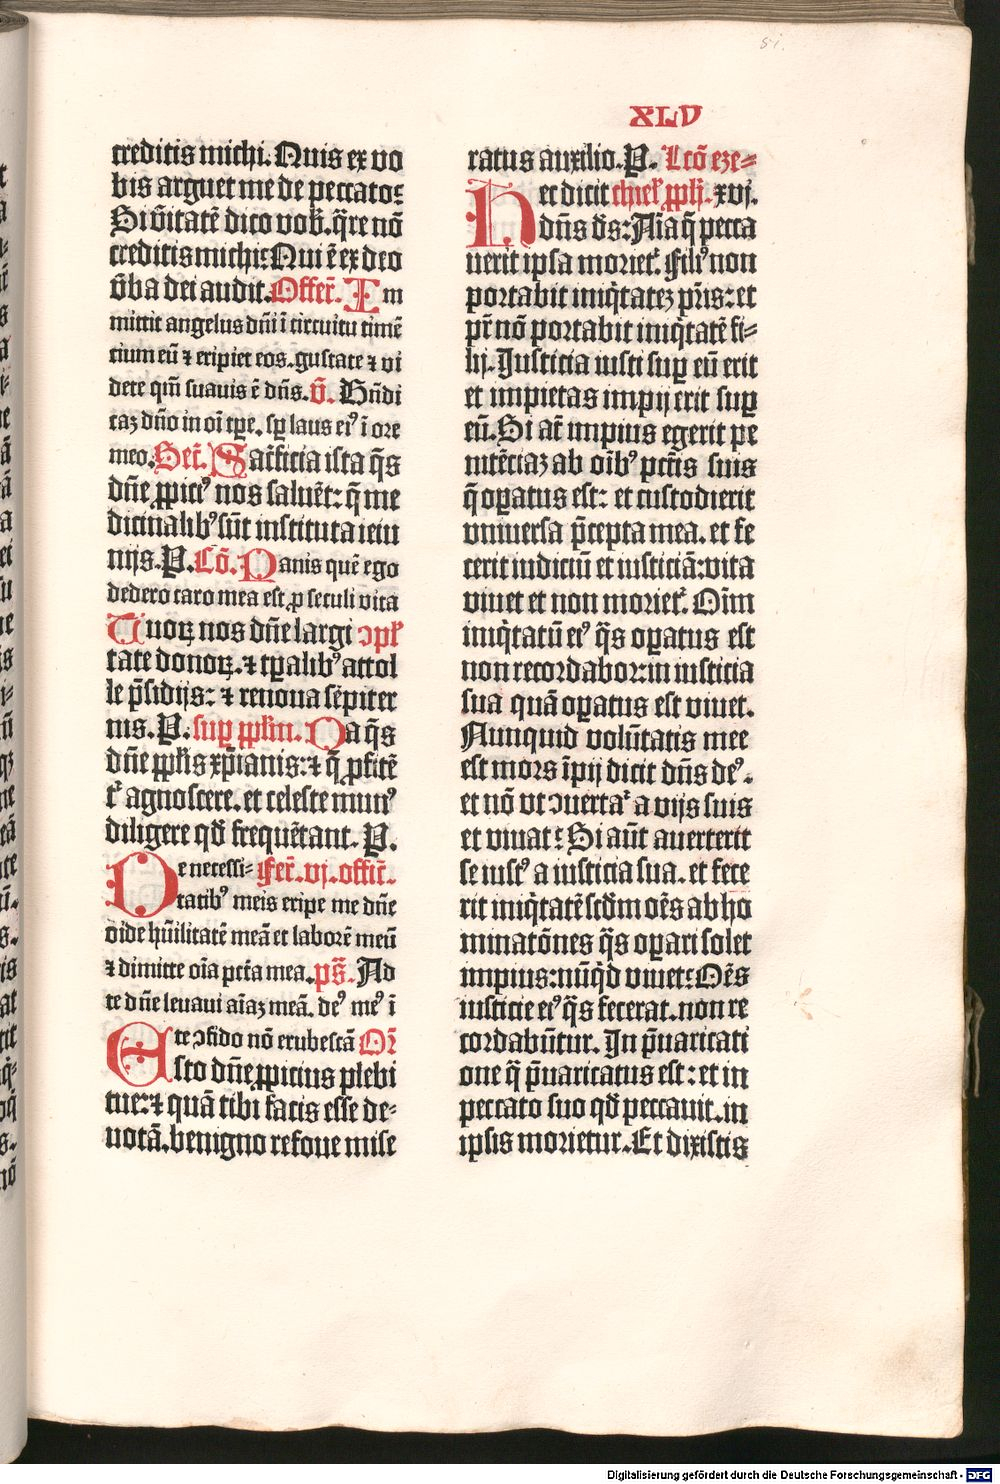 51.
XLV
creditis michi. Quis ex vo
bis arguet me de peccato?
Si v̄itatē dico vob̄. q̄re nō
creditis michi? Qui ē ex deo
v̄ba dei audit. Offer̄. Im
mittit angelus dn̄i ī circuitu timē
tium eū ⁊ eripiet eos. gustate ⁊ vi
dete qm̄ suauis ē dn̄s. v̄. Bn̄di
caꝫ dn̄o in oī tꝑe. sꝑ laus eiꝰ ī ore
meo. Secr̄. Sacr̄ficia ista q̄s
dn̄e ꝓpiciꝰ nos saluēt: q̄ me
dicinalibꝰ sūt instituta ieiu
nijs. P. Cō. Panis quē ego
dedero caro mea est, ꝓ seculi vita
Tuoꝝ nos dn̄e largi ↄpl̄
tate donoꝝ. ⁊ tꝑalibꝰ attol
le p̄sidijs: ⁊ renoua sēpiter
nis. P. suꝑ ppl̄m. Da q̄s
dn̄e ppl̄is xp̄ianis: ⁊ q̄ ꝓfitē
t᷑ agnoscere. et celeste munꝰ
diligere qđ frequētant. P.
De necessi- Fer̄. vj. offic̄.
tatibꝰ meis eripe me dn̄e
vide hūilitatē meā et laborē meū
⁊ dimitte oīa pctā mea. ps̄. Ad
te dn̄e leuaui aīaꝫ meā. deꝰ meꝰ ī
te ↄfido nō erubescā Or̄
Esto dn̄e ꝓpicius plebi
tue: ⁊ quā tibi facis esse de-
uotā. benigno refoue mise
ratus auxilio. P. Lcō eze-
ec dicit chiel̄ ꝓph̄. xvj.
Hdn̄s ds̄: Aīa q̄ pecca
uerit ipsa moriet᷑. Filiꝰ non
portabit iniq̄tateꝫ pr̄is: et
pr̄ nō portabit iniq̄tatē fi-
lij. Justicia iusti suꝑ eū erit
et impietas impij erit suꝑ
eū. Si at̄ impius egerit pe
nitēciaꝫ ab oībꝰ pctīs suis
q̄ oꝑatus est: et custodierit
vniuersa p̄cepta mea. et fe
cerit iudiciū et iusticiā: vita
viuet et non moriet᷑. Oīm
iniq̄tatū eiꝰ q̄s oꝑatus est
non recordabor: in iusticia
sua quā oꝑatus est viuet.
Nunquid volūtatis mee
est mors īpij dicit dn̄s deꝰ.
et nō vt ↄuertat᷑ a vijs suis
et viuat? Si aūt auerterit
se iustꝰ a iusticia sua. et fece
rit iniq̄tatē scđm oēs abho
minatōnes q̄s oꝑari solet
impius: nūq̄d viuet? Oēs
iusticie eiꝰ q̄s fecerat. non re
cordabūtur. In p̄uaricati
one q̄ p̄uaricatus est: et in
peccato suo qđ peccauit. in
ipsis morietur. Et dixistis
Digitalisierung gefördert durch die Deutsche Forschungsgemeinschaft - DFG